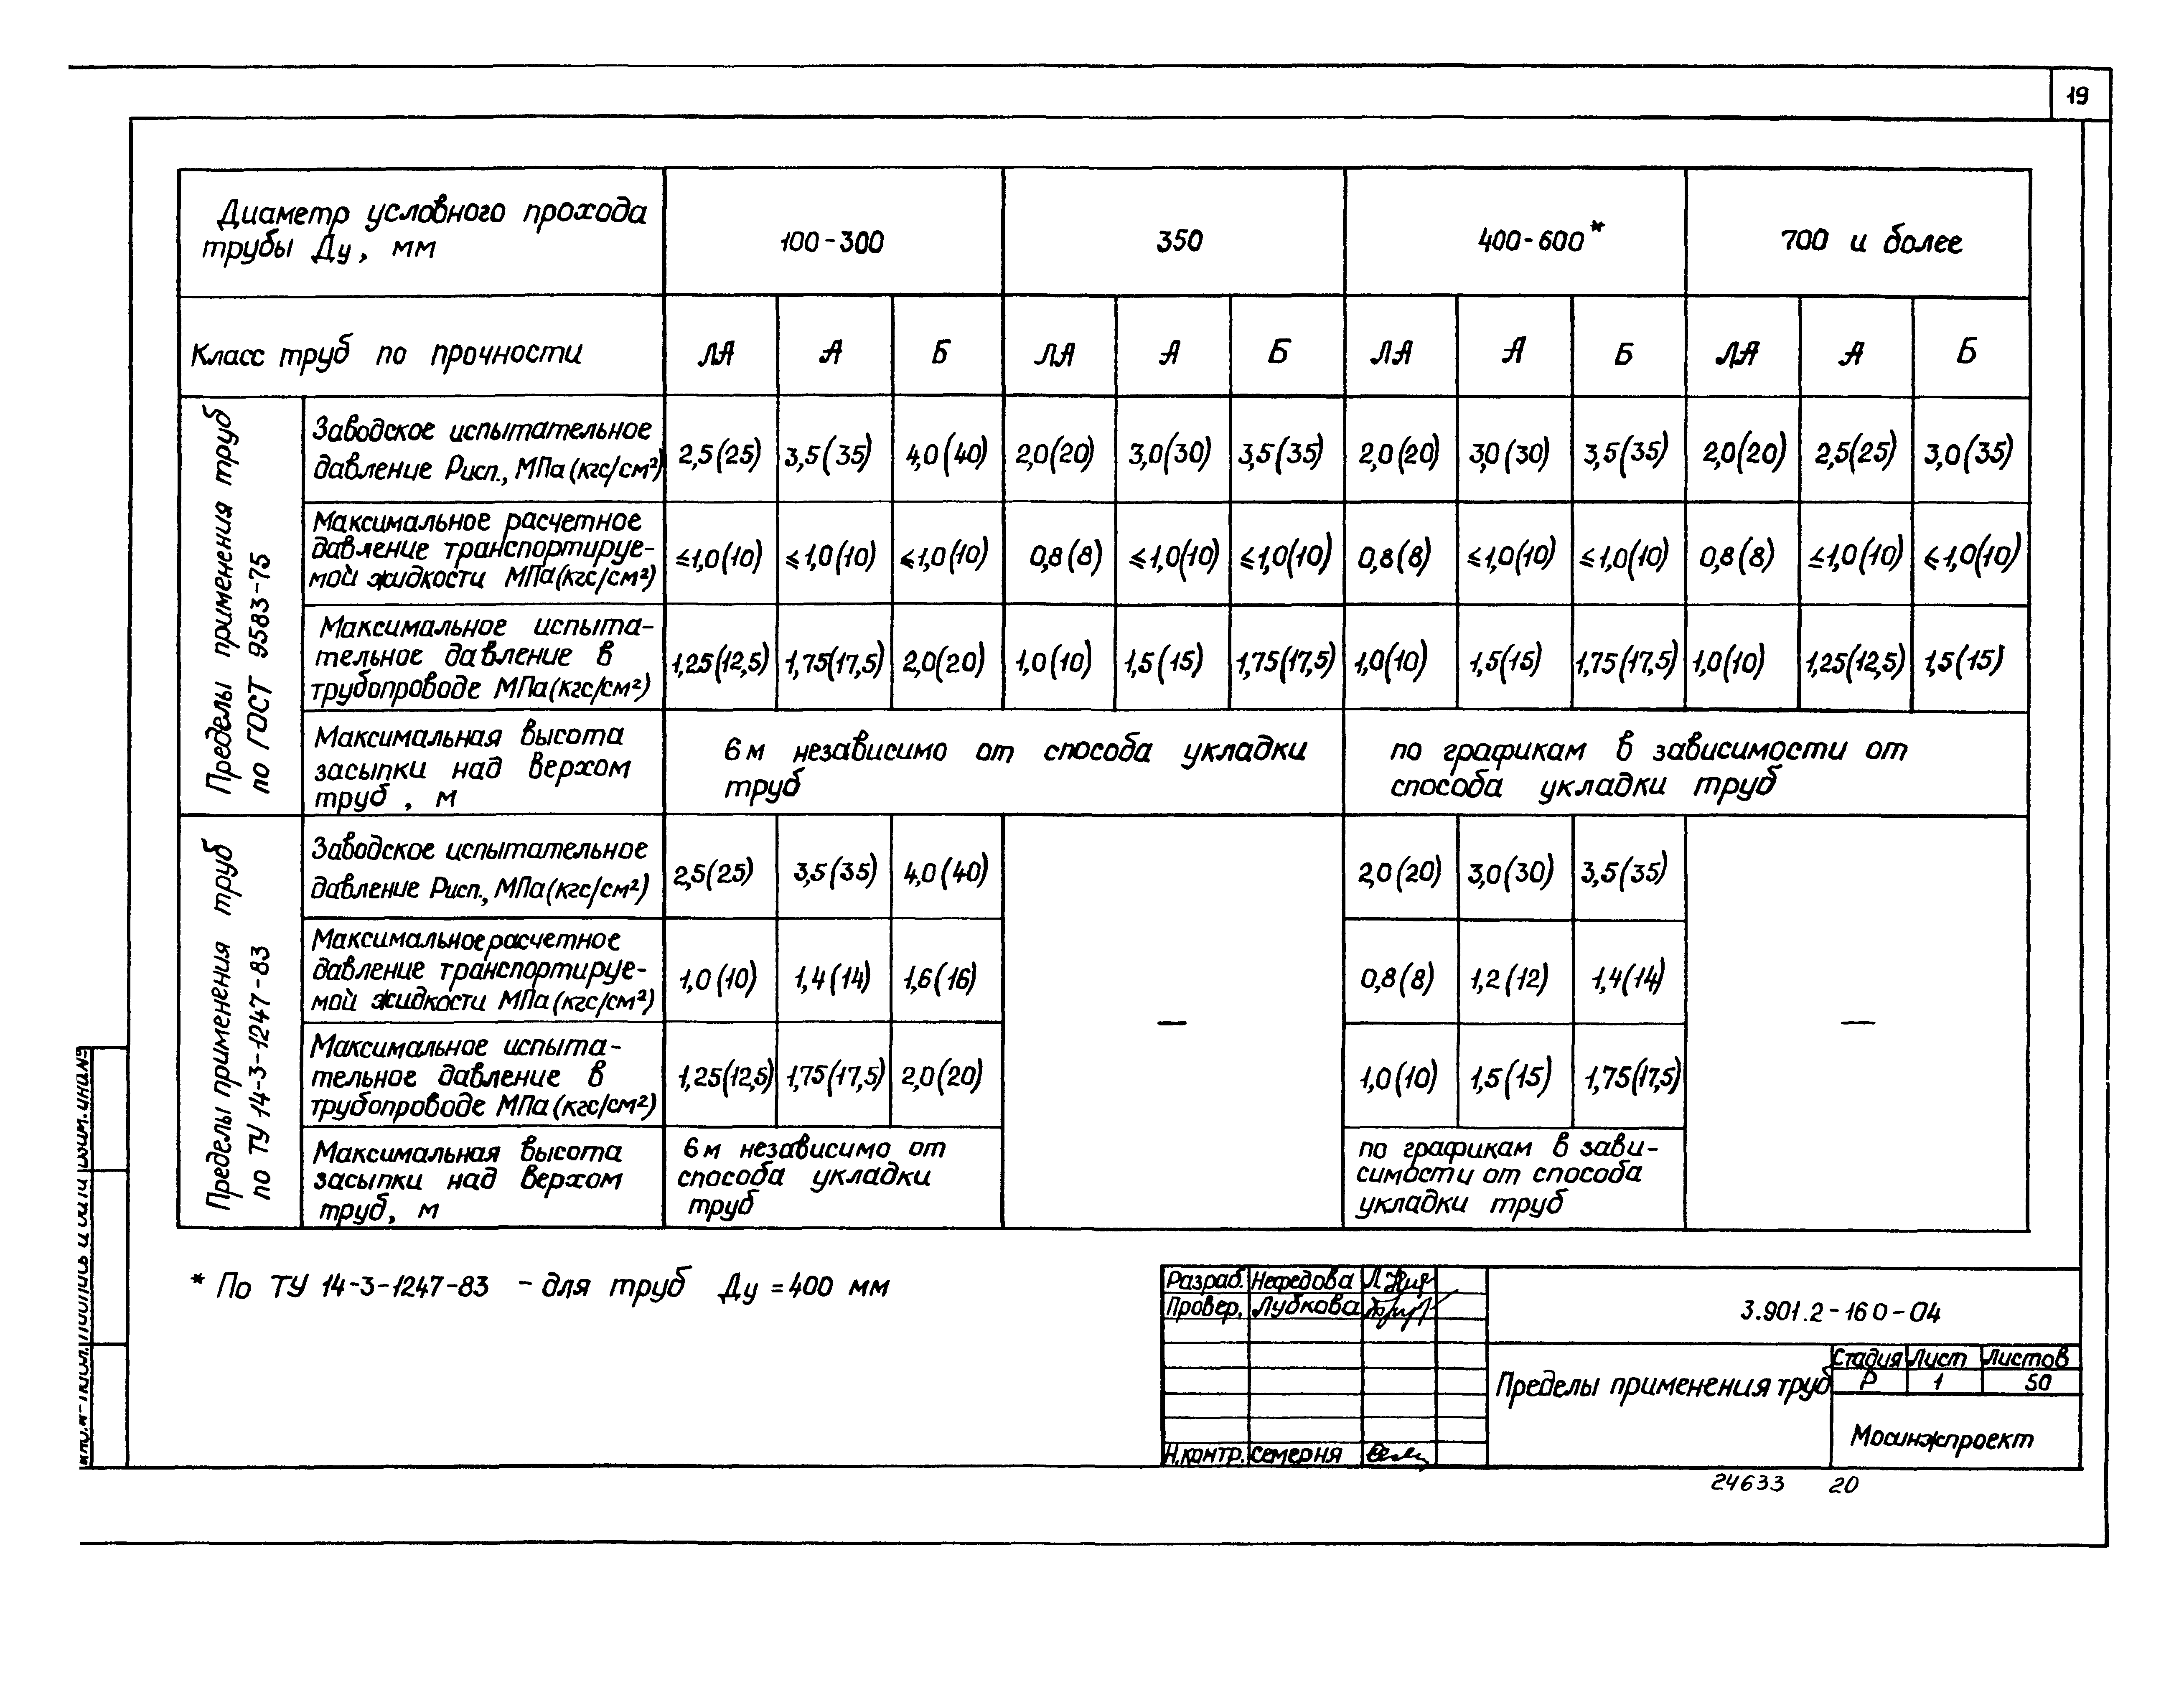 19
Диаметр условного прохода
трубы Ду, мм
100-300
350
400-600*
700 и более
Класс труб по прочности
ЛА А Б ЛА А Б ЛА А Б ЛА А Б
Пределы применения труб
по ГОСТ 9583-75
Заводское испытательное
давление Рисп., МПа (кгс/см²)
2,5(25) 3,5(35) 4,0(40) 2,0(20) 3,0(30) 3,5(35) 2,0(20) 3,0(30) 3,5(35) 2,0(20) 2,5(25) 3,0(35)
Максимальное расчетное
давление транспортируе-
мой жидкости МПа(кгс/см²)
≤1,0(10) ≤1,0(10) ≤1,0(10) 0,8(8) ≤1,0(10) ≤1,0(10) 0,8(8) ≤1,0(10) ≤1,0(10) 0,8(8) ≤1,0(10) ≤1,0(10)
Максимальное испыта-
тельное давление в
трубопроводе МПа(кгс/см²)
1,25(12,5) 1,75(17,5) 2,0(20) 1,0(10) 1,5(15) 1,75(17,5) 1,0(10) 1,5(15) 1,75(17,5) 1,0(10) 1,25(12,5) 1,5(15)
Максимальная высота
засыпки над верхом
труб, м
6м независимо от способа укладки
труб
по графикам в зависимости от
способа укладки труб
Пределы применения труб
по ТУ 14-3-1247-83
Заводское испытательное
давление Рисп., МПа(кгс/см²)
2,5(25) 3,5(35) 4,0(40) — 2,0(20) 3,0(30) 3,5(35) —
Максимальное расчетное
давление транспортируе-
мой жидкости МПа(кгс/см²)
1,0(10) 1,4(14) 1,6(16) 0,8(8) 1,2(12) 1,4(14)
Максимальное испыта-
тельное давление в
трубопроводе МПа(кгс/см²)
1,25(12,5) 1,75(17,5) 2,0(20) 1,0(10) 1,5(15) 1,75(17,5)
Максимальная высота
засыпки над верхом
труб, м
6м независимо от
способа укладки
труб
по графикам в зави-
симости от способа
укладки труб
* По ТУ 14-3-1247-83 - для труб Ду = 400 мм
Разраб. Нефедова
Провер. Лубкова
Н.контр. Семерня
3.901.2-160-04
Пределы применения труб
Стадия Лист Листов
Р 1 50
Мосинжпроект
24633 20